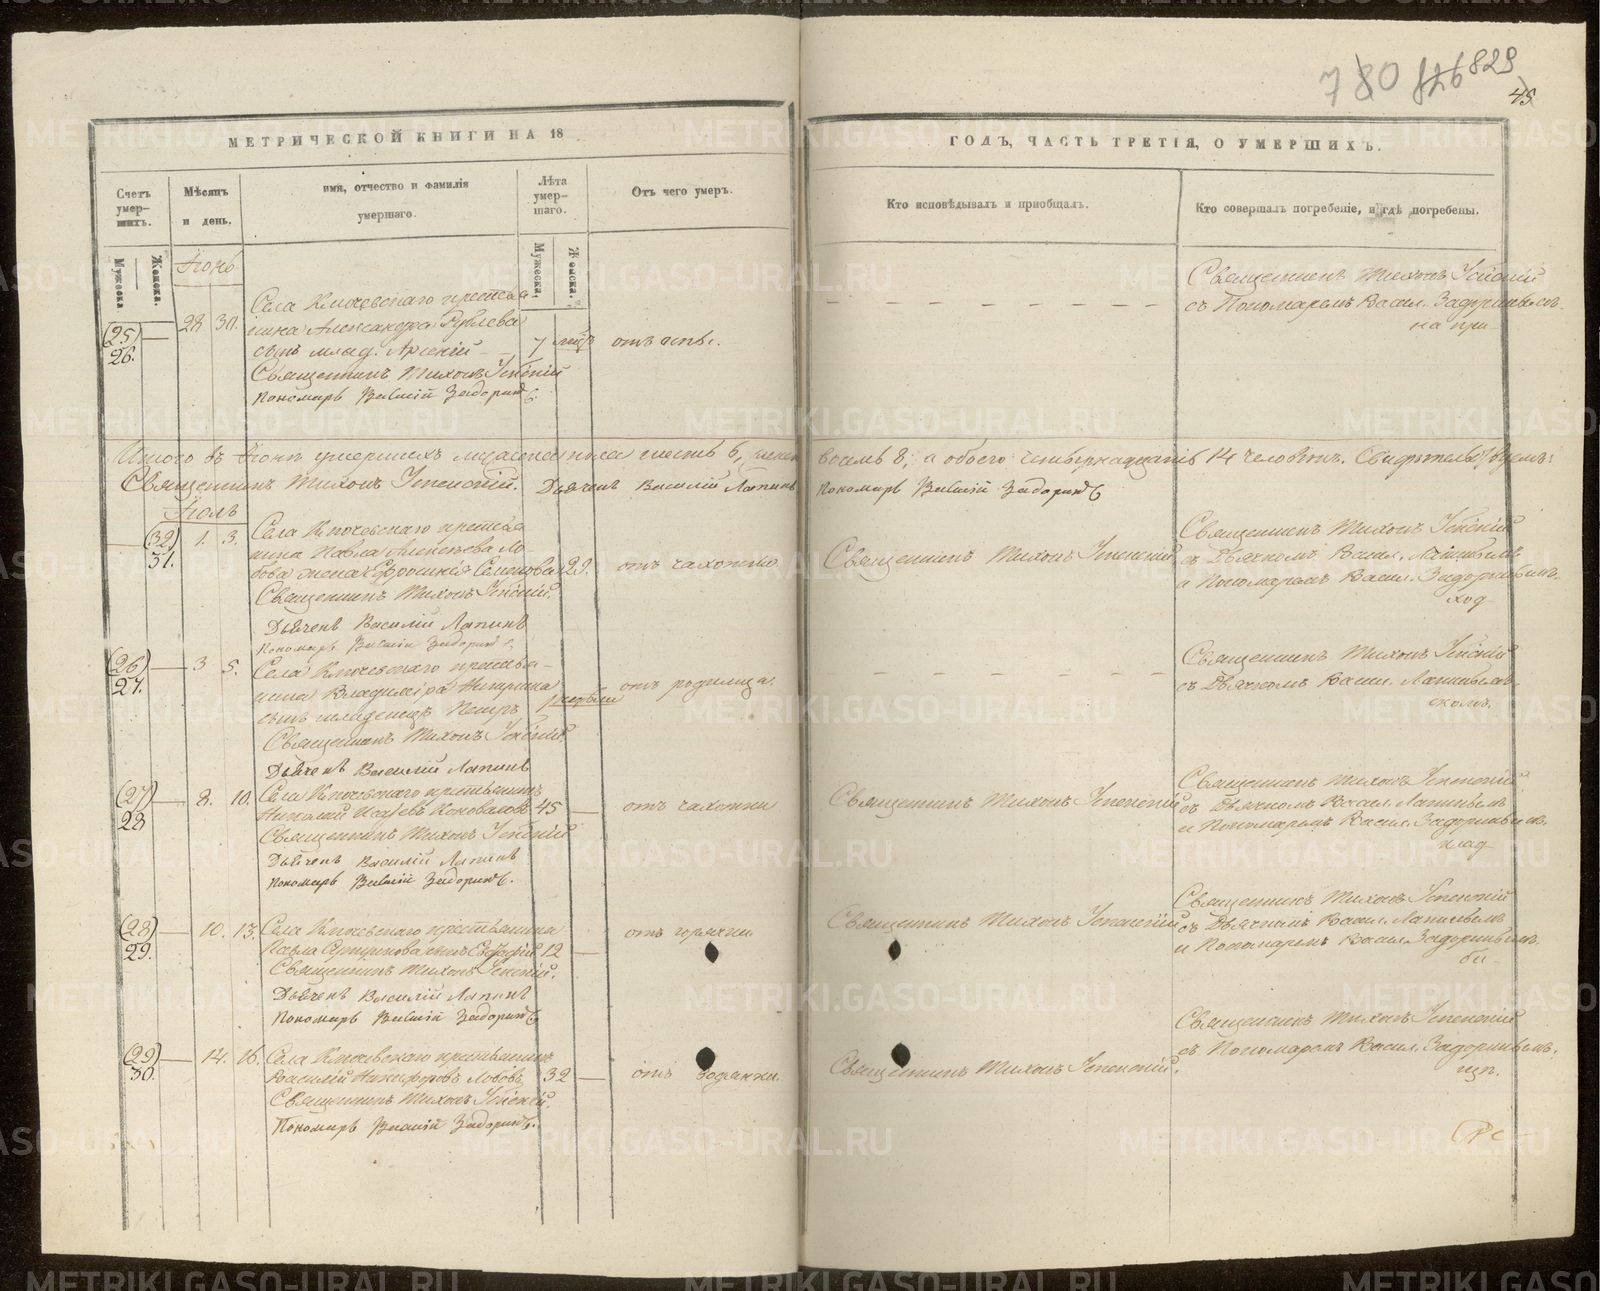 780 826 829
45
МЕТРИЧЕСКОЙ КНИГИ НА 18
ГОДЪ, ЧАСТЬ ТРЕТІЯ, О УМЕРШИХЪ.
Счетъ умер-шихъ.
Мѣсяцъ и день.
имя, отчество и фамилія умершаго.
Лѣта умер-шаго.
Отъ чего умеръ.
Кто исповѣдывалъ и пріобщалъ.
Кто совершалъ погребеніе, и гдѣ погребены.
Мужеска
Женска.
Мужеска.
Женска.
Іюнь
(25) 26. — 28 30.
Села Ключевскаго крестья
нина Александра Рублева
сынъ млад. Арсеній
Священникъ Тихонъ Успенскій
Пономарь Василій Задоринъ
7
отъ оспы.
Священникъ Тихонъ Успенскій
съ Пономаремъ Васил. Задоринымъ
на при-
Итого въ Іюнѣ умершихъ мужеска пола шесть 6, женск
восемь 8, а обоего четырнадцать 14 человѣкъ.
Священникъ Тихонъ Успенскій. Дьячекъ Василій Лапинъ
Пономарь Василій Задоринъ
Іюль
(32) 31. 1. 3.
Села Ключевскаго крестья
нина Павла Алексѣева Ло
бова жена Ефросинія Семенова 29.
Священникъ Тихонъ Успенскій.
Дьячекъ Василій Лапинъ
Пономарь Василій Задоринъ
отъ чахотки
Священникъ Тихонъ Успенскій
Священникъ Тихонъ Успенскій
съ Дьячкомъ Васил. Лапинымъ
и Пономаремъ Васил. Задоринымъ
ход-
(26) 27. — 3 5.
Села Ключевскаго крестья-
нина Владиміра
сынъ младенецъ Петръ
Священникъ Тихонъ Успенскій
Дьячекъ Василій Лапинъ
отъ родимца.
Священникъ Тихонъ Успенскій
съ Дьячкомъ Васил. Лапинымъ
скомъ
(27) 28 — 8. 10.
Села Ключевскаго крестьянинъ
Николай Коновалов 45 —
Священникъ Тихонъ Успенскій
Дьячекъ Василій Лапинъ
Пономарь Василій Задоринъ.
отъ чахотки
Священникъ Тихонъ Успенскій
Священникъ Тихонъ Успенскій
съ Дьячкомъ Васил. Лапинымъ
и Пономаремъ Васил. Задоринымъ
клад-
(28) 29. — 10. 13.
Села Ключевскаго крестьянина
Павла сынъ 12 —
Священникъ Тихонъ Успенскій.
Дьячекъ Василій Лапинъ
Пономарь Василій Задоринъ
отъ горячки
Священникъ Тихонъ Успенскій
Священникъ Тихонъ Успенскій
съ Дьячкомъ Васил. Лапинымъ
и Пономаремъ Васил. Задоринымъ
би-
(29) 30. — 14. 16.
Села Ключевскаго крестьянинъ
Василій Никифоровъ Лобовъ 32 —
Священникъ Тихонъ Успенскій.
Пономарь Василій Задоринъ.
отъ водянки.
Священникъ Тихонъ Успенскій.
Священникъ Тихонъ Успенскій
съ Пономаремъ Васил. Задоринымъ.
щѣ.
METRIKI.GASO-URAL.RU